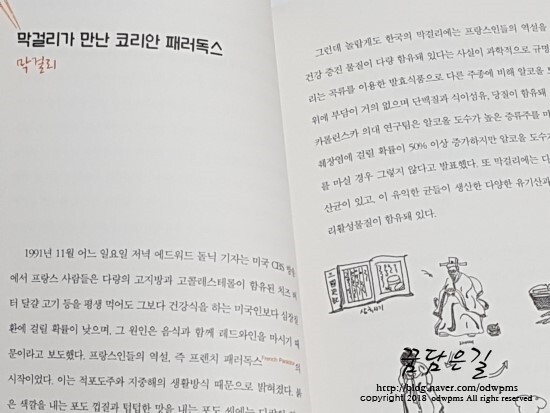 막걸리가 만난 코리안 패러독스
막걸리
1991년 11월 어느 일요일 저녁 에드워드 돌닉 기자는 미국 CBS 방송
에서 프랑스 사람들은 다량의 고지방과 고콜레스테롤이 함유된 치즈 버
터 달걀 고기 등을 평생 먹어도 그보다 건강식을 하는 미국인보다 심장질
환에 걸릴 확률이 낮으며, 그 원인은 음식과 함께 레드와인을 마시기 때
문이라고 보도했다. 프랑스인들의 역설, 즉 프렌치 패러독스French Paradox의
시작이었다. 이는 적포도주와 지중해의 생활방식 때문으로 밝혀졌다. 붉
은 색깔을 내는 포도 껍질과 텁텁한 맛을 내는 포도 씨에는
그런데 놀랍게도 한국의 막걸리에는 프랑스인들의 역설을
건강 증진 물질이 다량 함유돼 있다는 사실이 과학적으로 규명
리는 곡류를 이용한 발효식품으로 다른 주종에 비해 알코올 도
위에 부담이 거의 없으며 단백질과 식이섬유, 당질이 함유돼
카롤린스카 의대 연구팀은 알코올 도수가 높은 증류주를 마
췌장염에 걸릴 확률이 50% 이상 증가하지만 알코올 도수가
를 마실 경우 그렇지 않다고 발표했다. 또 막걸리에는 다
산균이 있고, 이 유익한 균들이 생산한 다양한 유기산과
리활성물질이 함유돼 있다.
꿈담은길
http://blog.naver.com/odwpms
copyright 2018 odwpms All right reserved